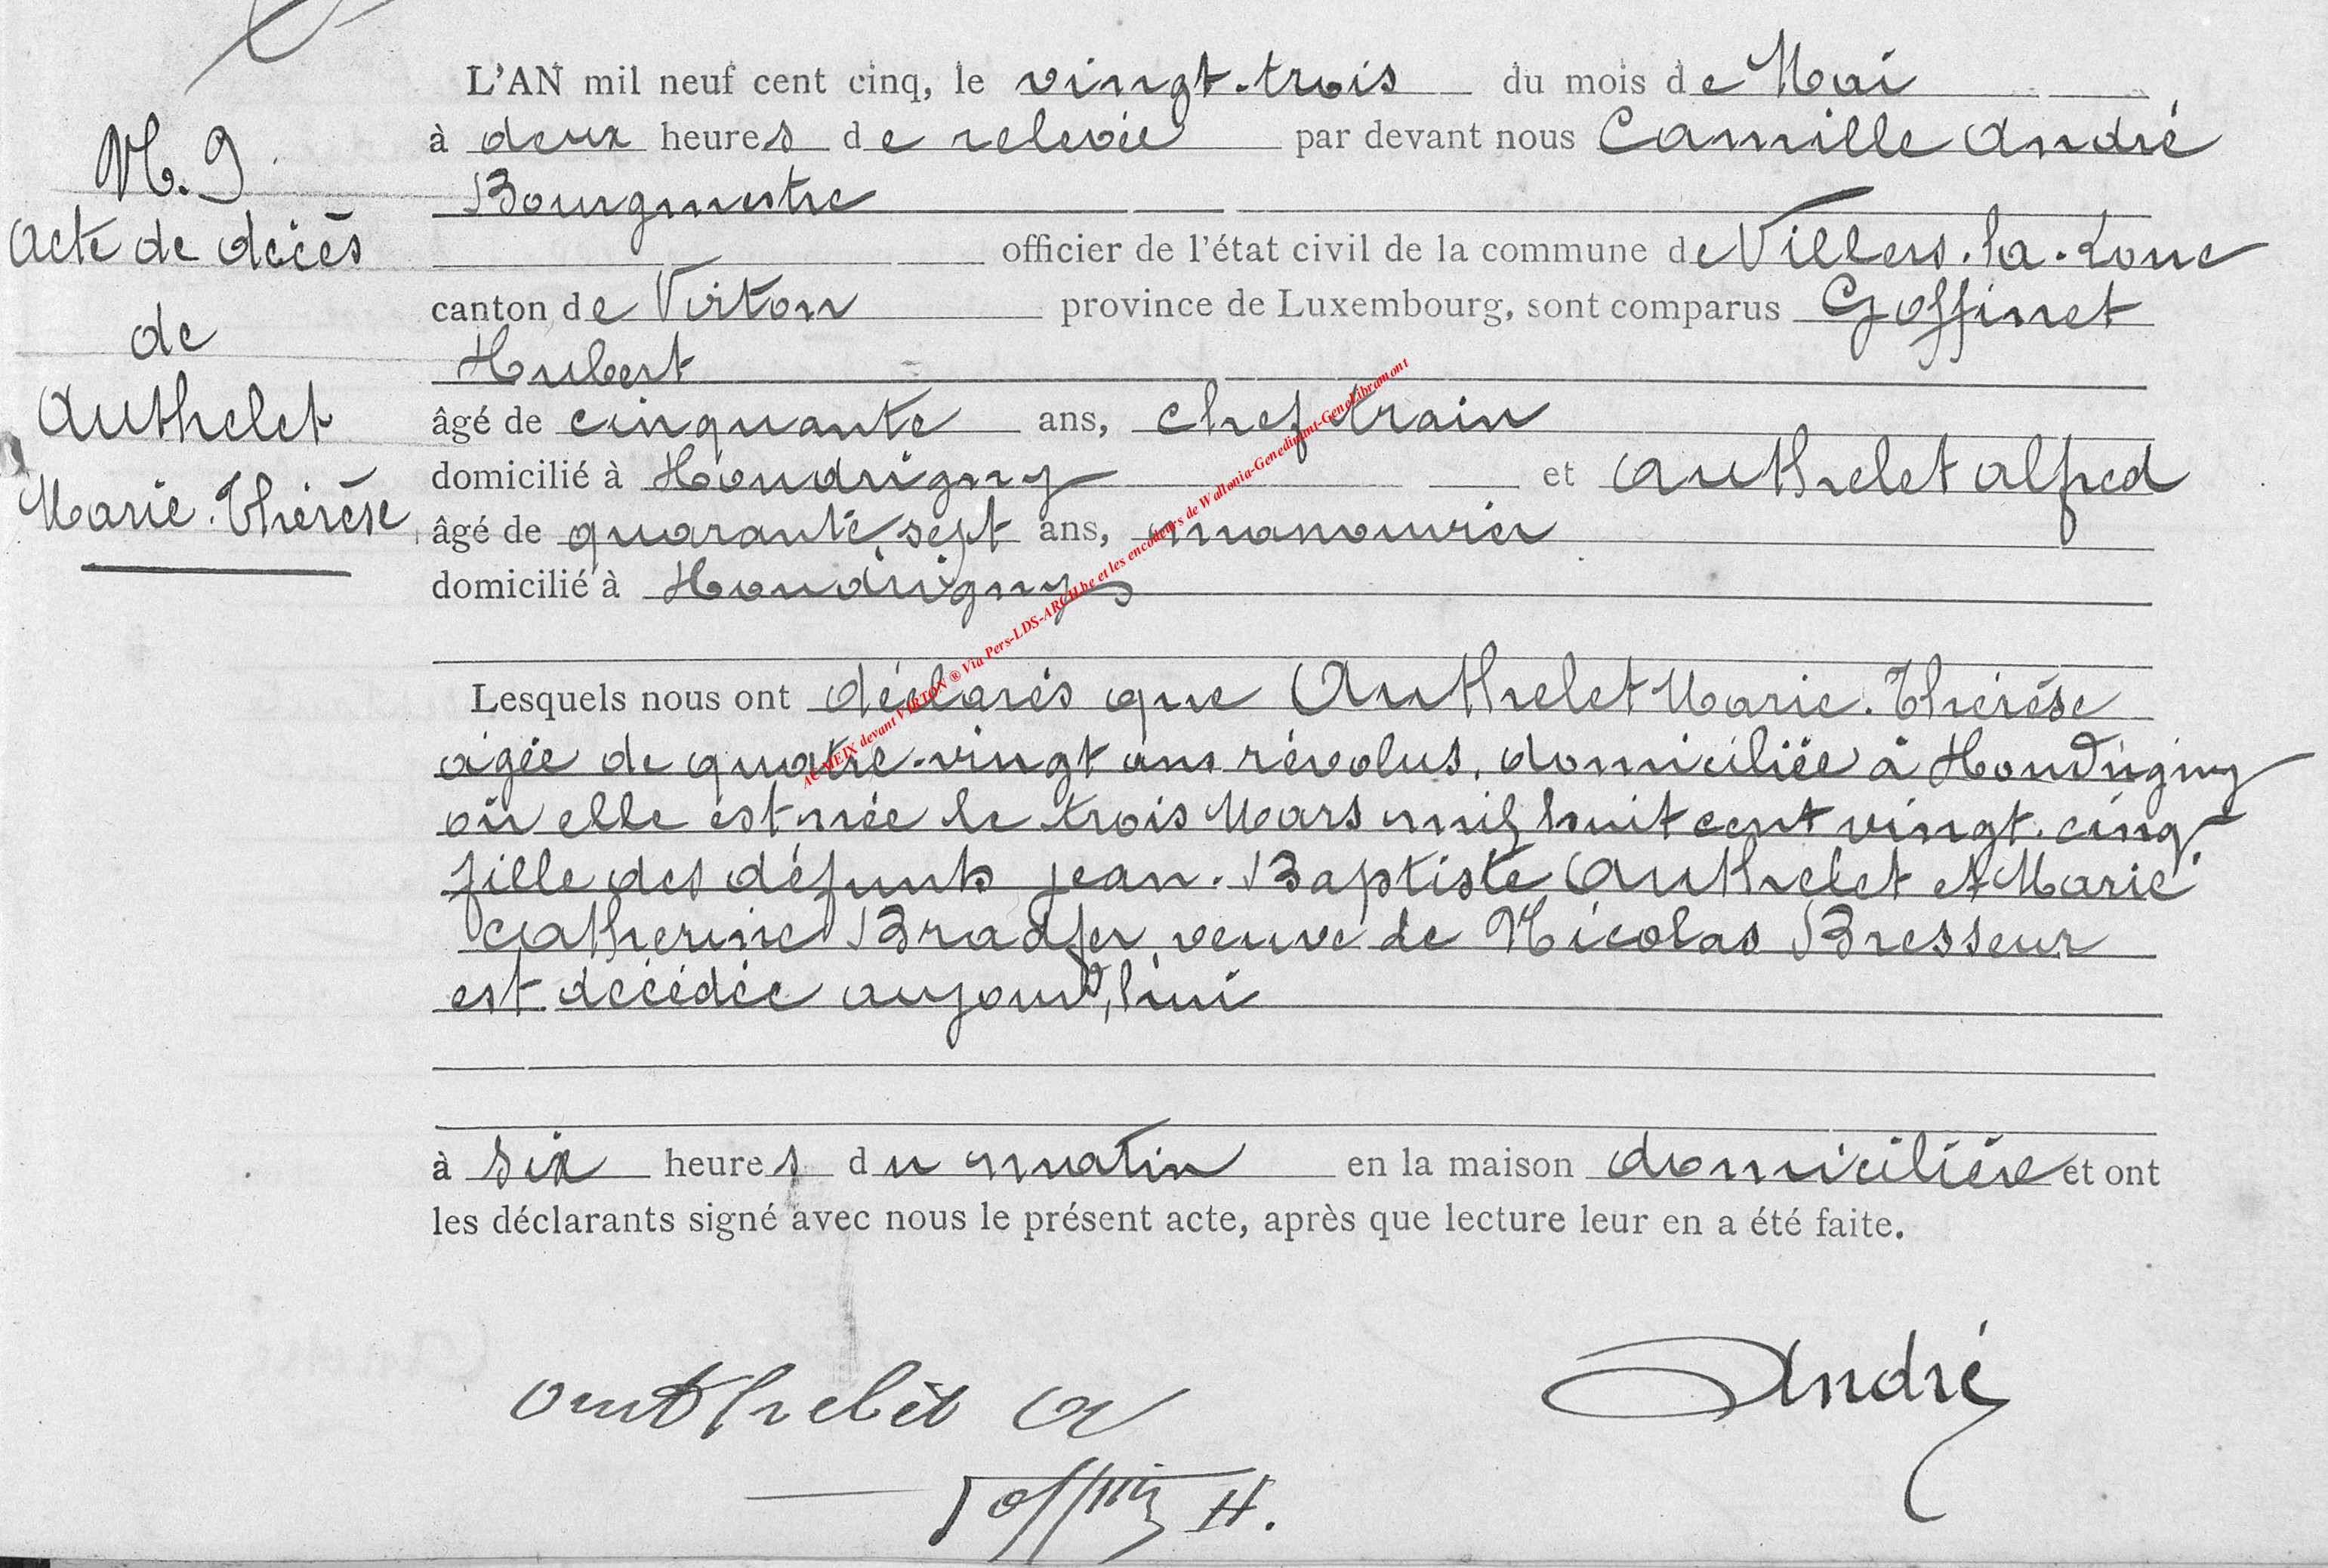 N. 9
Acte de décès
de
Authelet
Marie. Thérèse
L'AN mil neuf cent cinq, le vingt-trois du mois de Mai
à deux heures de relevée par devant nous Camille André
Bourgmestre
officier de l'état civil de la commune de Villers-la-Loue
canton de Virton province de Luxembourg, sont comparus Goffinet
Hubert
âgé de cinquante ans, chef train
domicilié à Houdrigny et Authelet Alfred
âgé de quarante-sept ans, manouvrier
domicilié à Houdrigny
Lesquels nous ont déclarés que Authelet Marie. Thérèse
agée de quatre-vingt ans révolus, domiciliée à Houdrigny
où elle est née le trois Mars mil huit cent vingt-cinq
fille des défunts Jean-Baptiste Authelet et Marie
Catherine Bradfer veuve de Nicolas Bresseur
est décédée aujourd'hui
à six heures du matin en la maison domicilière et ont
les déclarants signé avec nous le présent acte, après que lecture leur en a été faite.
André
Authelet A
Goffinet H.
AC MEIX devant VIRTON ® Via Pers-LDS-ARCH.be et les encodeurs de Wallonia-Genedinant-GeneLibramont